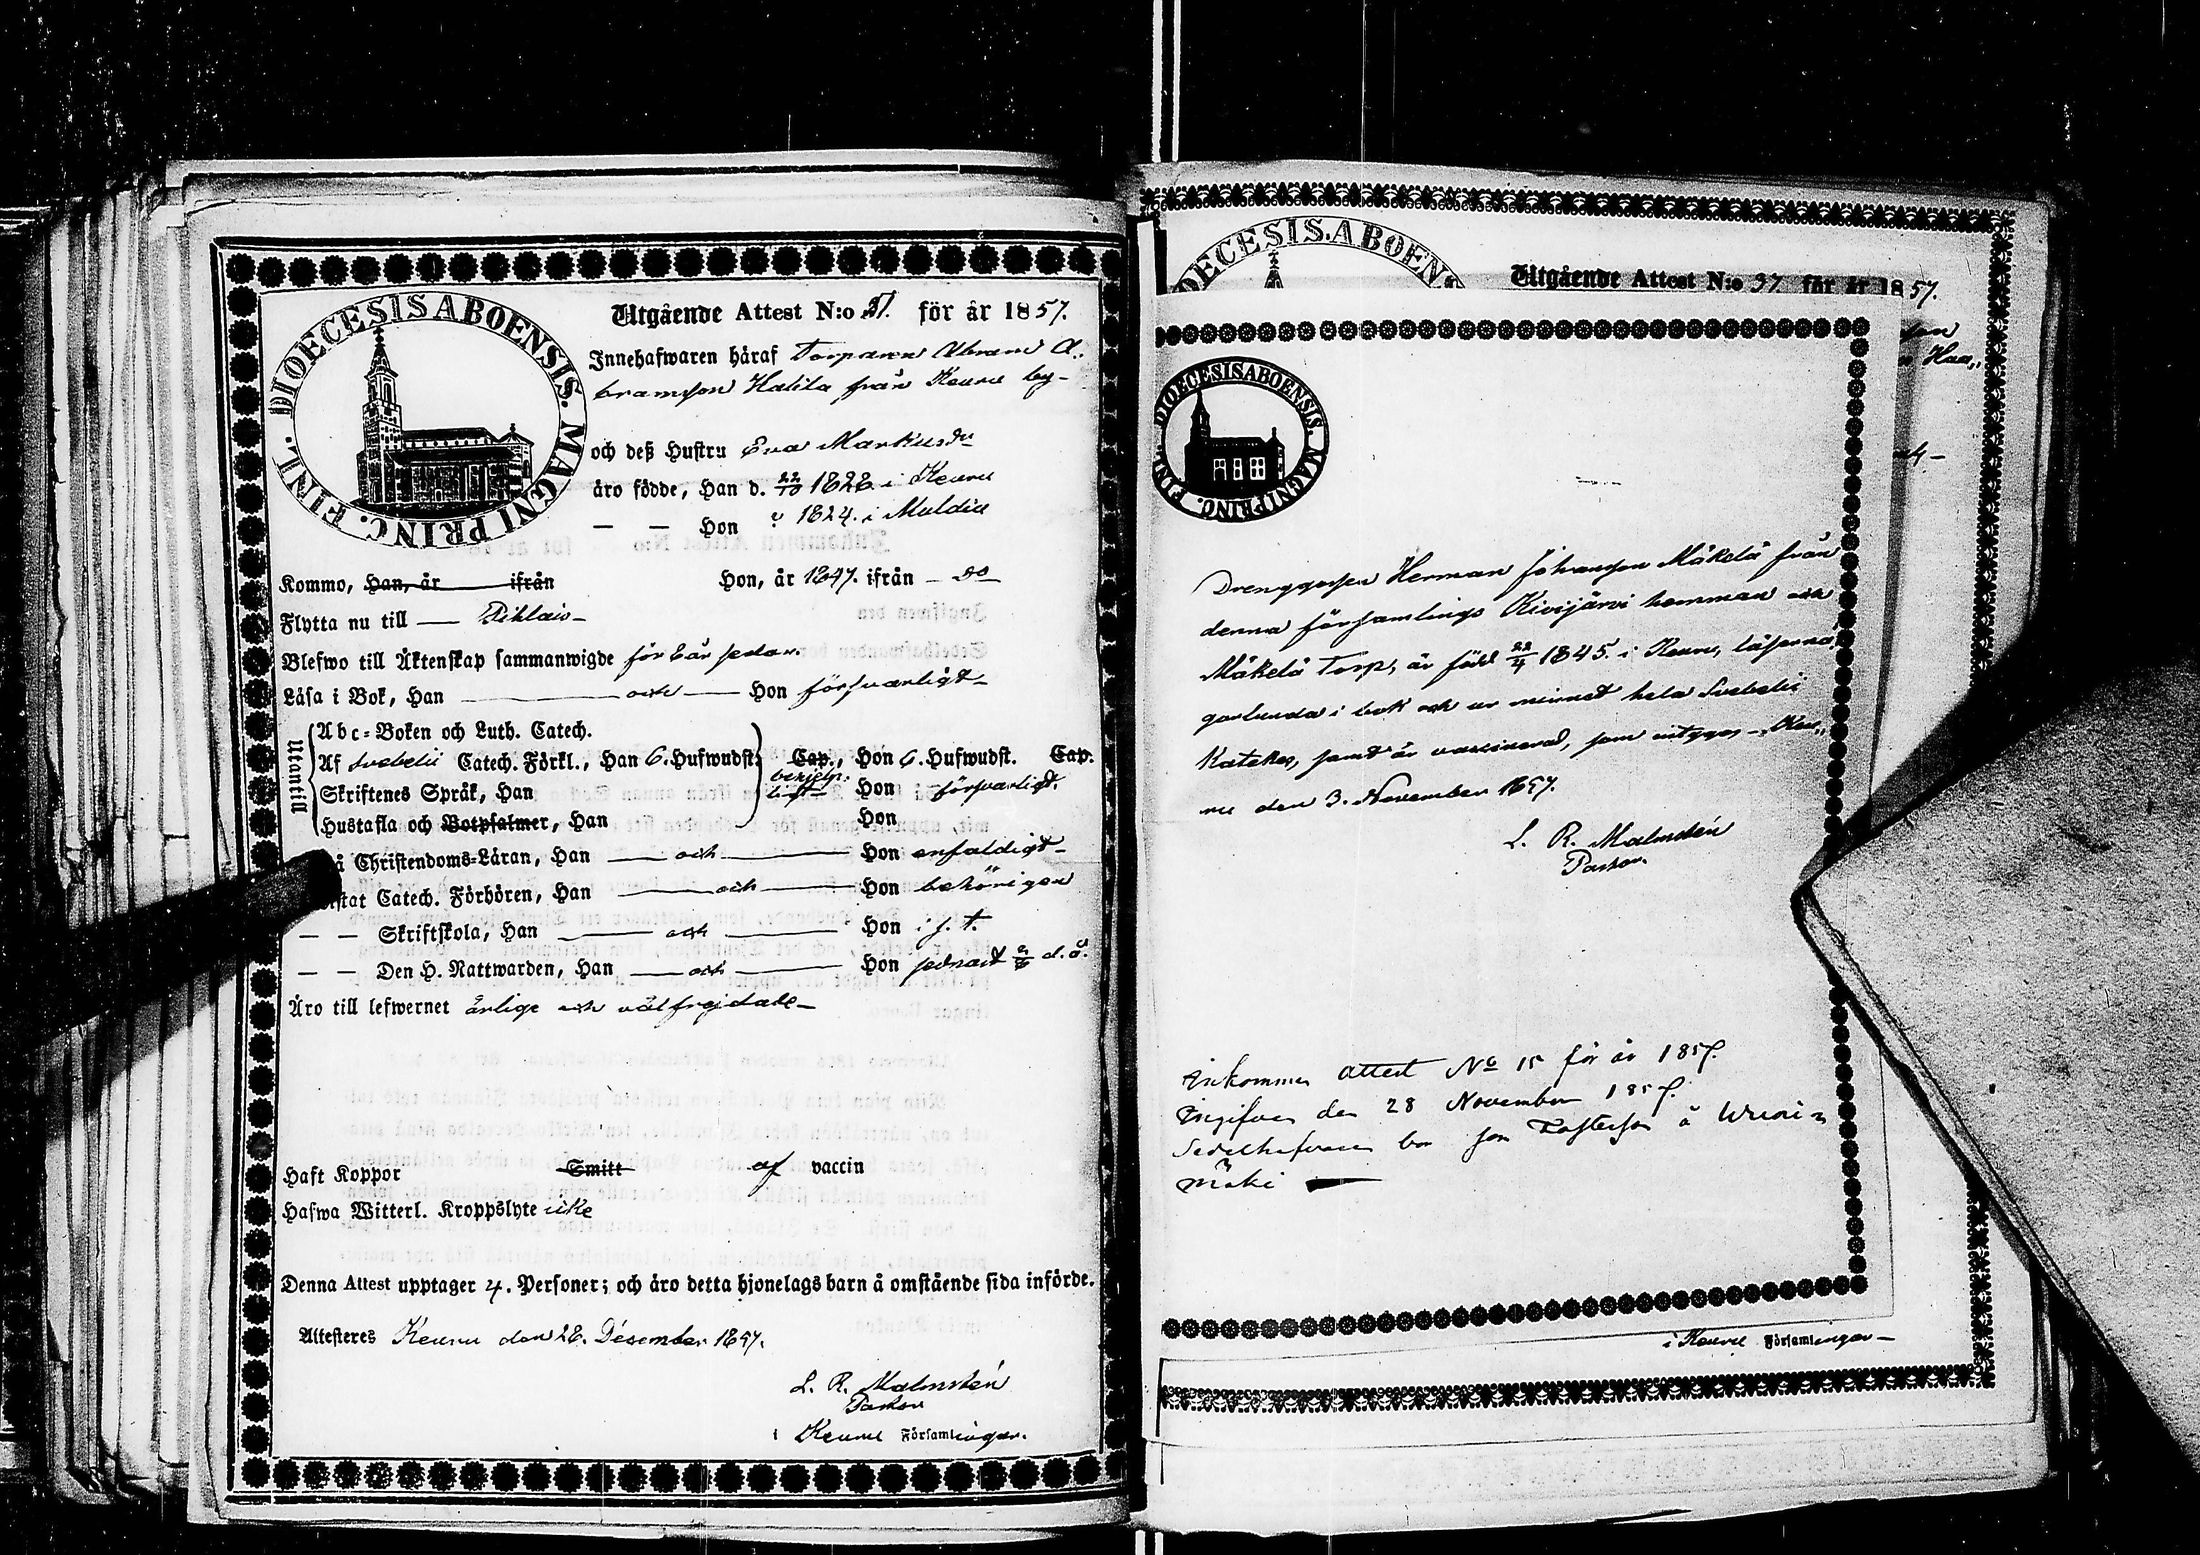 DIOECESIS ABOENSIS. MAGNI PRINC. FINL.
Utgående Attest N:o 51. för år 1857.
Innehafwaren häraf Torparen Abram A-
bramsson Halila från Keuru by-
och deß Hustru Eva Markusdr
äro födde, Han d. 22/10 1828 i Keuru
— — Hon 1824. i Muldia
Kommo, Han, år ifrån Hon, år 1847. ifrån — do
Flytta nu till — Pihlais-
Blefwo till Äktenskap sammanwigde för år sedan.
Läsa i Bok, Han — och — Hon försvarligt-
Utantill
Abc-Boken och Luth. Catech.
Af Svebelii Catech. Förkl., Han 6. Hufwudst. Cap., Hon 6. Hufwudst. Cap.
Skriftenes Språk, Han hjelp-ligt Hon försvarligt.
Hustafla och Botpsalmer, Han Hon
å Christendoms-Läran, Han — och — Hon enfaldigt-
istat Catech. Förhören, Han — och — Hon behörigen
— — Skriftskola, Han — och — Hon i f. t.
— — Den H. Nattwarden, Han — och — Hon sednast d. å.
Äro till lefwernet ärlige och välfrejdade-
Haft Koppor Smitt af vaccin
Hafwa Witterl. Kroppslyte icke
Denna Attest upptager 4. Personer; och äro detta hjonelags barn å omstående sida införde.
Attesteres Keuru den 28. December 1857.
L. R. Malmstén
Pastor
i Keuru Församlingar.
DIOECESIS. ABOENS
Utgående Attest N:o 37 för år 1857.
DIOECESIS ABOENSIS. MAGNI PRINC. FIN
Drenggossen Herman Johansson Mäkelä från
denna församlings Kivijärvi hemman och
Mäkelä Torp, är född 22/4 1845. i Keuru, läser
i bok och ur minnet hela Svebelii
Kateches, samt är vaccinerad, som intygas — Keu„
ru den 3. November 1857.
L. R. Malmstén
Pastor.
Inkommen attest No 15 för år 1857.
Ingifven den 28 November 1857.
Sedelhafvaren bor som å
mäki
i Keuru Församlingar-